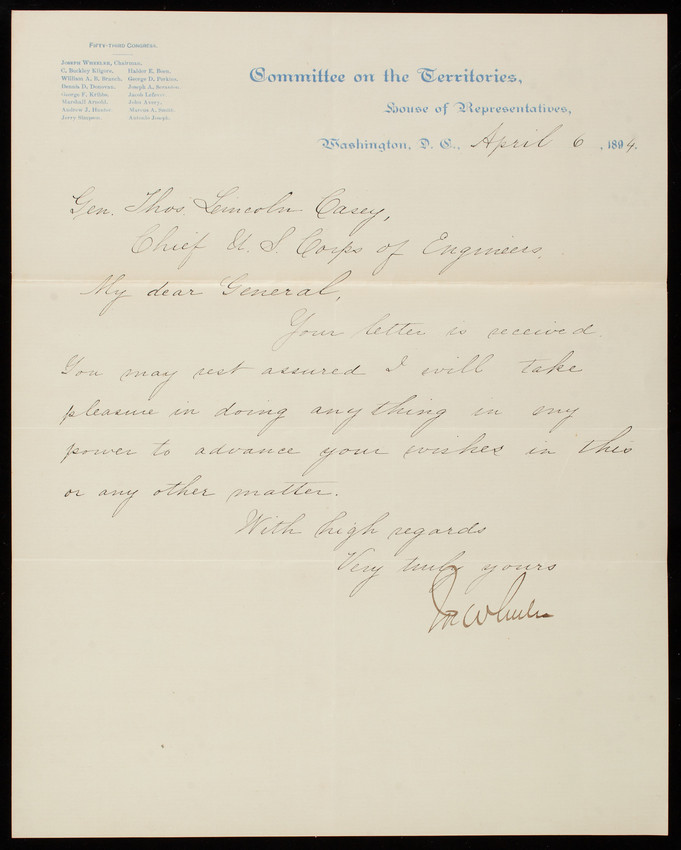 FIFTY-THIRD CONGRESS.
JOSEPH WHEELER, Chairman.
C. Buckley Kilgore, Halster E. Been.
William A. B. Branch. George D. Perkins.
Dennis D. Donovan. Joseph A. Scranton.
George F. Kribbs. Jacob LeFever.
Marshall Arnold. John Avery.
Andrew J. Hunter. Marion A. Smith.
Jerry Simpson. Antonio Joseph.
Committee on the Territories,
House of Representatives,
Washington, D. C., April 6, 1894.
Gen. Thos Lincoln Casey,
Chief U. S. Corps of Engineers,
My dear General,
Your letter is received.
You may rest assured I will take
pleasure in doing anything in my
power to advance your wishes in this
or any other matter.
With high regards
Very truly yours
Jos Wheeler